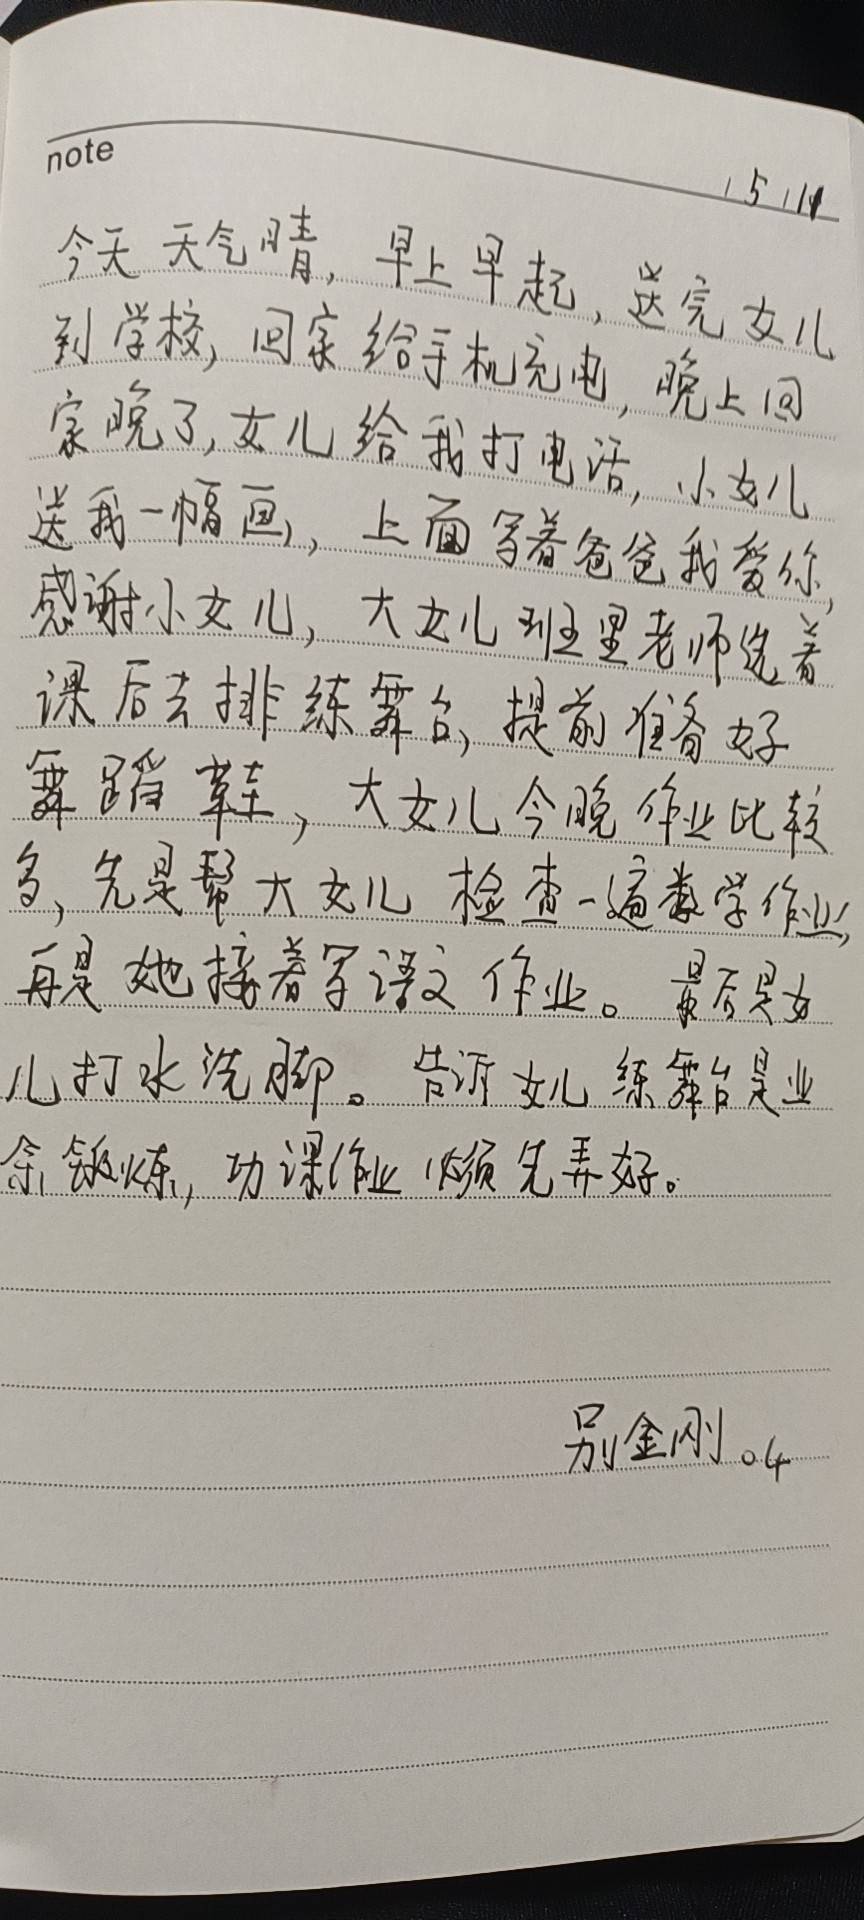 note
15 11
今天 天气晴, 早上早起, 送完女儿
到学校, 回家给手机充电, 晚上回
家晚了, 女儿给我打电话, 小女儿
送我一幅画, 上面写着爸爸我爱你,
感谢小女儿, 大女儿班里老师选着
课后去排练舞台, 提前准备好
舞蹈鞋, 大女儿今晚作业比较
多, 先是帮大女儿检查一遍数学作业,
再是她接着写语文作业。最后是女
儿打水洗脚。告诉女儿练舞台是业
余锻炼, 功课作业必须先弄好。
别金刚.04